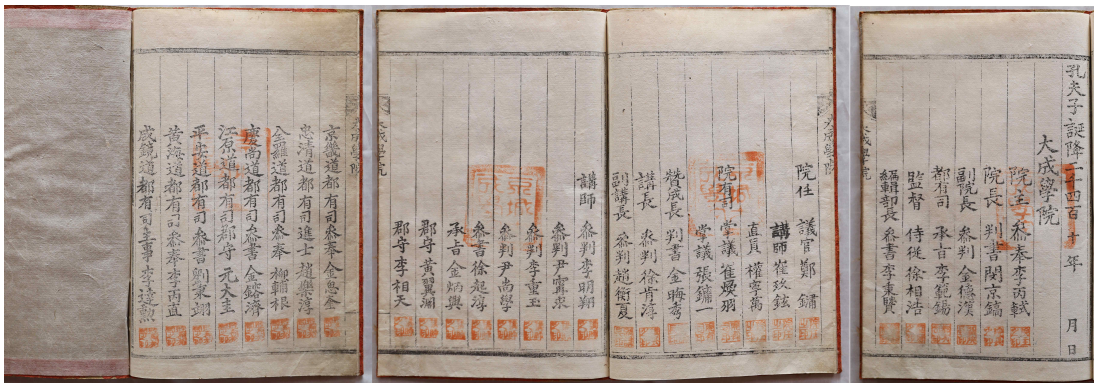 孔夫子誕降二千四百 十年 月 日
大成學院
院主 叅奉 李丙軾
院長 判書 閔京鎬
副院長 叅判 金德漢
都有司 承旨 李範錫
監督 侍從 徐相浩
編輯部長 叅書 李東贊
大成學院
大成學院
院任 議官 鄭鏽
講師 崔玖鉉
直員 權寧萬
院有司 掌議 崔煥
掌議 張鏞一
贊成長 判書 金晦秀
講長 叅判 徐肯淳
副講長 叅判 趙衡夏
講師 叅判 李明翔
叅判 尹甯求
叅判 李重玉
叅判 尹尚學
叅書 徐起淳
承旨 金炳興
郡守 黃翼淵
郡守 李相天
大成學院
大成學院
京畿道都有司 叅奉 金魯奎
忠清道都有司 進士 趙樂淳
全羅道都有司 叅奉 柳輔根
慶尚道都有司 叅書 金鎔濟
江原道都有司 郡守 元大圭
平安道都有司 叅書 劉東翊
黃海道都有司 叅奉 李丙直
咸鏡道都有司 主事 李遠勳